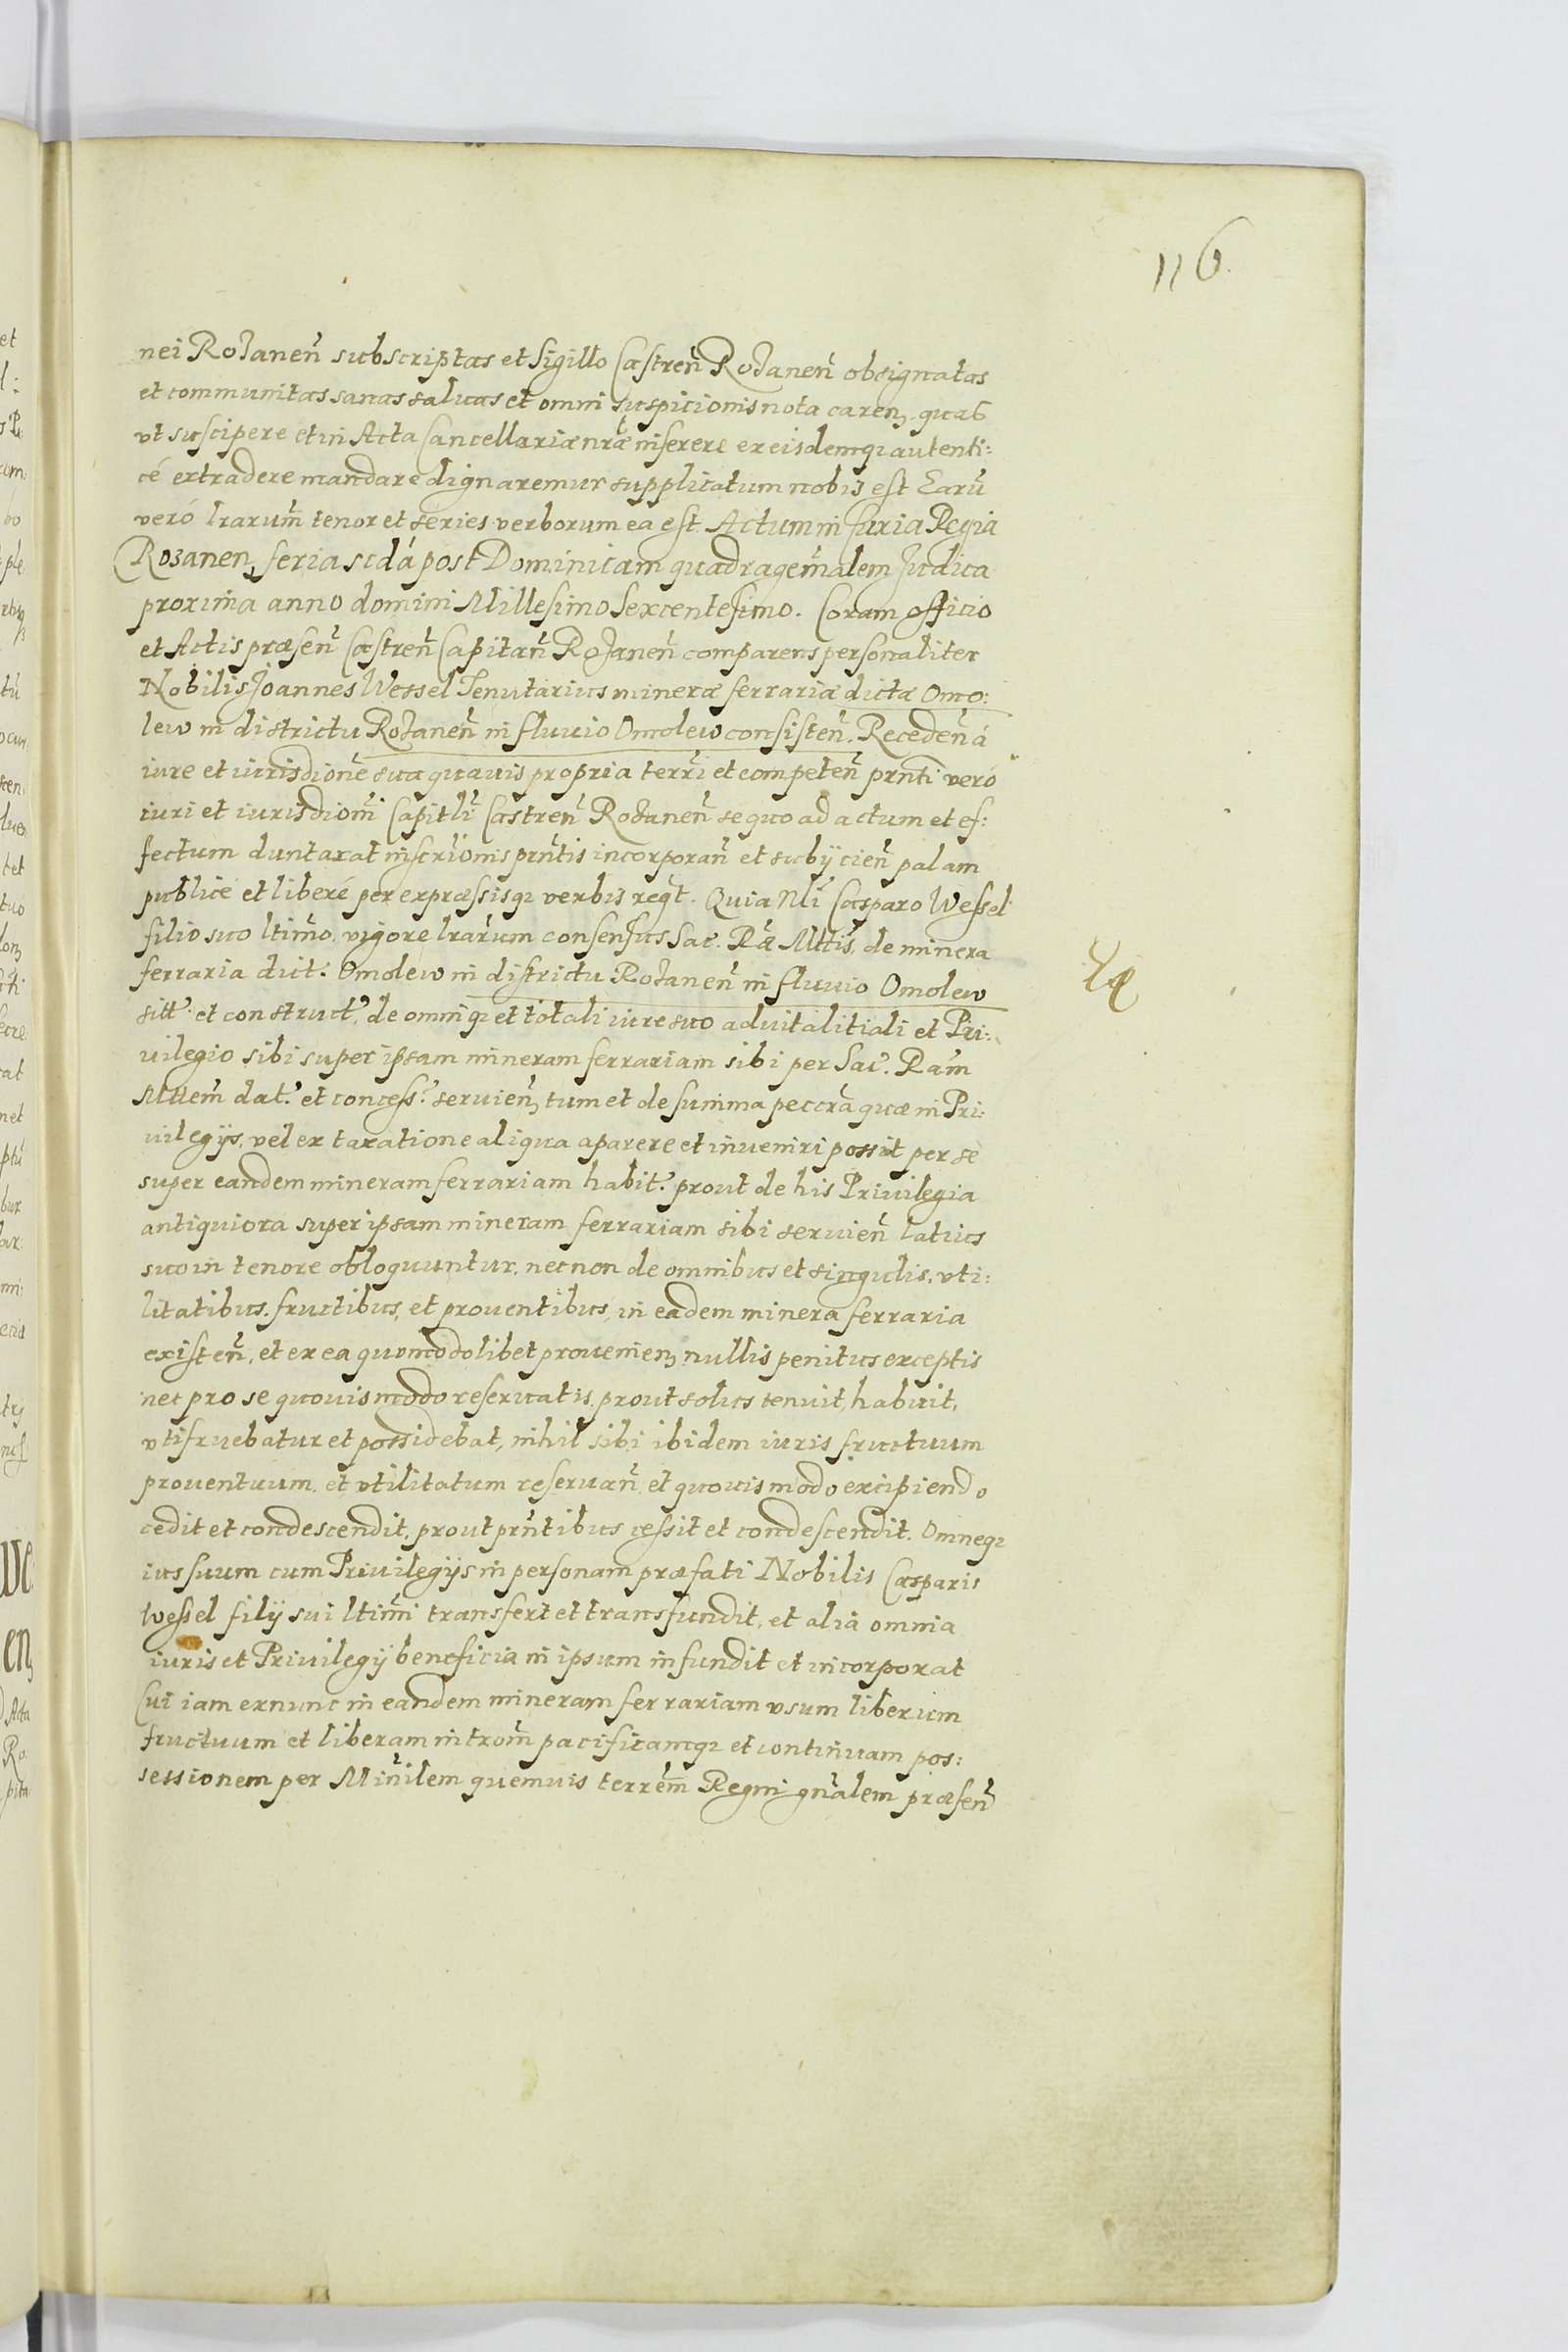 116.
nei Rożaneñ subscriptas et Sigillo Castreñ Rożaneñ obsignatas
et communitas sanas saluas et omni suspicionis nota careñ quas
vt suscipere et in Acta Cancellariæ nræ inserere ex eisdemq; autenti:
cé extradere mandare dignaremur supplicatum nobis est Earũ
veró lrarum̃ tenor et series verborum ea est. Actum in Curia Regia
Rozanen feria scdá post Dominicam quadragem̃alem Judica
proxima anno domini Millesimo Sexcentesimo. Coram officio
et Actis præseñ Castreñ Capitañ Rożaneñ comparens personaliter
Nobilis Joannes Wessel Tenutarius mineræ ferrariæ dictæ Omo:
lew in districtu Rożaneñ in fluuio Omolew consisteñ. Recedeñ á
iure et iurisdione sua quauis propria terrĩ et competeñ pr̃nti veró
iuri et iurisdiom̃i Capitl̃i Castreñ Rożaneñ se quo ad actum et ef:
fectum duntaxat inscrỹonis pr̃ntis incorporañ et subÿcieñ palam
publicé et liberé per expræssisq; verbis reqt̃. Quia Nl̃i Casparo Wessel
filio suo ltim̃o, vigore lrarum consensus Sac. Ræ Mttis, de minera
ferraria dict. Omolew in districtu Rożaneñ in fluuio Omolew
sitt. et construct. de omniq; et totali iure suo aduitalitiali et Pri:
uilegio sibi super ipsam mineram ferrariam sibi per Sac. Ram̃
Mttem̃ dat. et concess. seruieñ, tum et de summa peccr̃a quæ in Pri:
uilegÿs, vel ex taxatione aliqua aparere et inueniri possit per se
super eandem mineram ferrariam habit. prout de his Priuilegia
antiquiora super ipsam mineram ferrariam sibi seruieñ latius
suo in tenore obloquuntur, necnon de omnibus et singulis, vti:
litatibus, fructibus, et prouentibus, in eadem minera ferraria
existeñ, et ex ea quomodolibet prouenieñ nullis penitus exceptis
nec pro se quouismodo reseruatis, prout solus tenuit, habuit,
vtifruebatur et possidebat, nihil sibi ibidem iuris fructuum
prouentuum, et vtilitatum reseruañ, et quouis modo excipiendo
cedit et condescendit, prout pr̃ntibus cessit et condescendit. Omneq;
ius suum cum Priuilegÿs in personam præfati Nobilis Casparis
Wessel filÿ sui ltim̃i transfert et transfundit, et alia omnia
iuris et Priuilegÿ beneficia in ipsum infundit et incorporat
Cui iam exnunc in eandem mineram ferrariam vsum liberum
fructuum et liberam introm̃ pacificamq; et continuam pos:
sessionem per Min̄ilem quemuis terrem̃ Regni gn̄alem præseñ